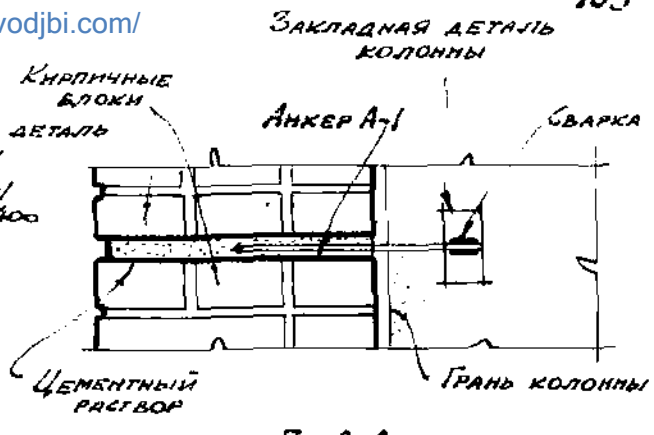 vodjbi.com/
ЗАКЛАДНАЯ ДЕТАЛЬ
КОЛОННЫ
КИРПИЧНЫЕ
БЛОКИ
ДЕТАЛЬ
АНКЕР А-1
СВАРКА
ЦЕМЕНТНЫЙ
РАСТВОР
ГРАНЬ КОЛОННЫ